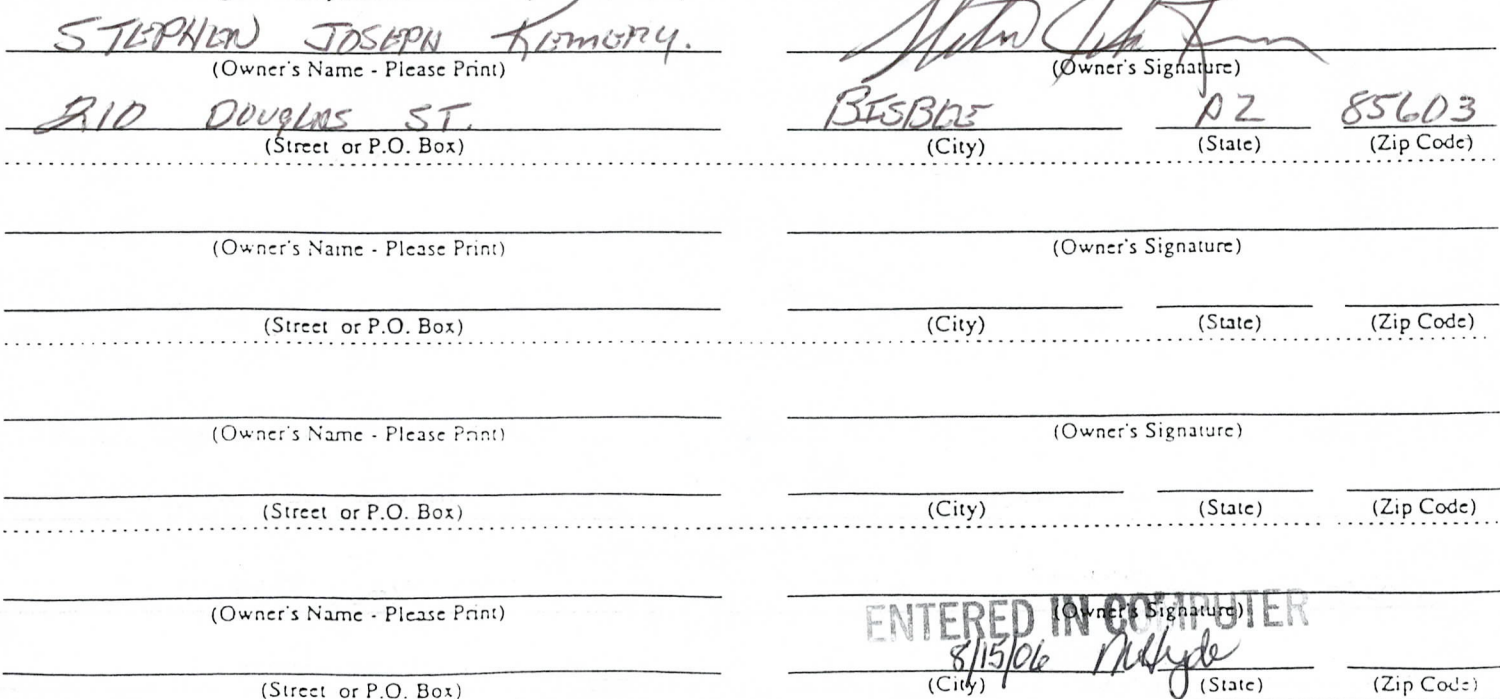 STEPHEN JOSEPH KEMERY.
(Owner's Name - Please Print) (Owner's Signature)
210 DOUGLAS ST. BISBEE AZ 85603
(Street or P.O. Box) (City) (State) (Zip Code)
(Owner's Name - Please Print) (Owner's Signature)
(Street or P.O. Box) (City) (State) (Zip Code)
(Owner's Name - Please Print) (Owner's Signature)
(Street or P.O. Box) (City) (State) (Zip Code)
(Owner's Name - Please Print) (Owner's Signature)
ENTERED IN COMPUTER
8/15/06 McHyde
(Street or P.O. Box) (City) (State) (Zip Code)